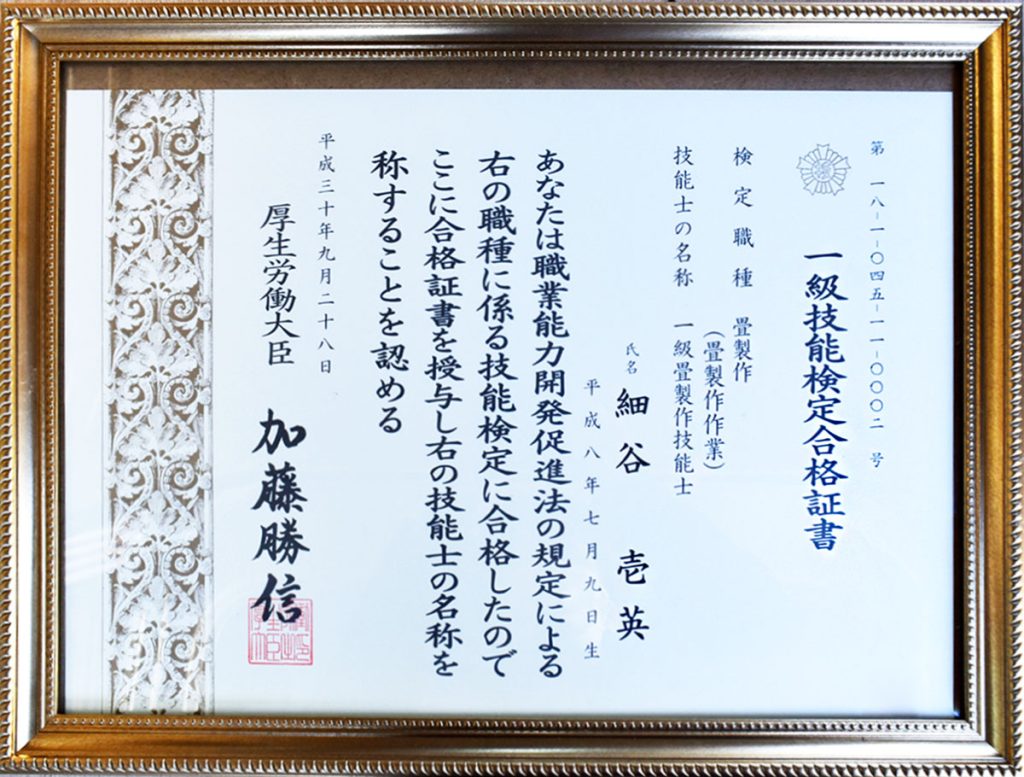 第 一八-一-〇四五-一一-〇〇〇二 号
一級技能検定合格証書
検定職種 畳製作
(畳製作作業)
技能士の名称 一級畳製作技能士
氏名 細谷 壱英
平成八年七月九日生
あなたは職業能力開発促進法の規定による
右の職種に係る技能検定に合格したので
ここに合格証書を授与し右の技能士の名称を
称することを認める
平成三十年九月二十八日
厚生労働大臣 加藤勝信